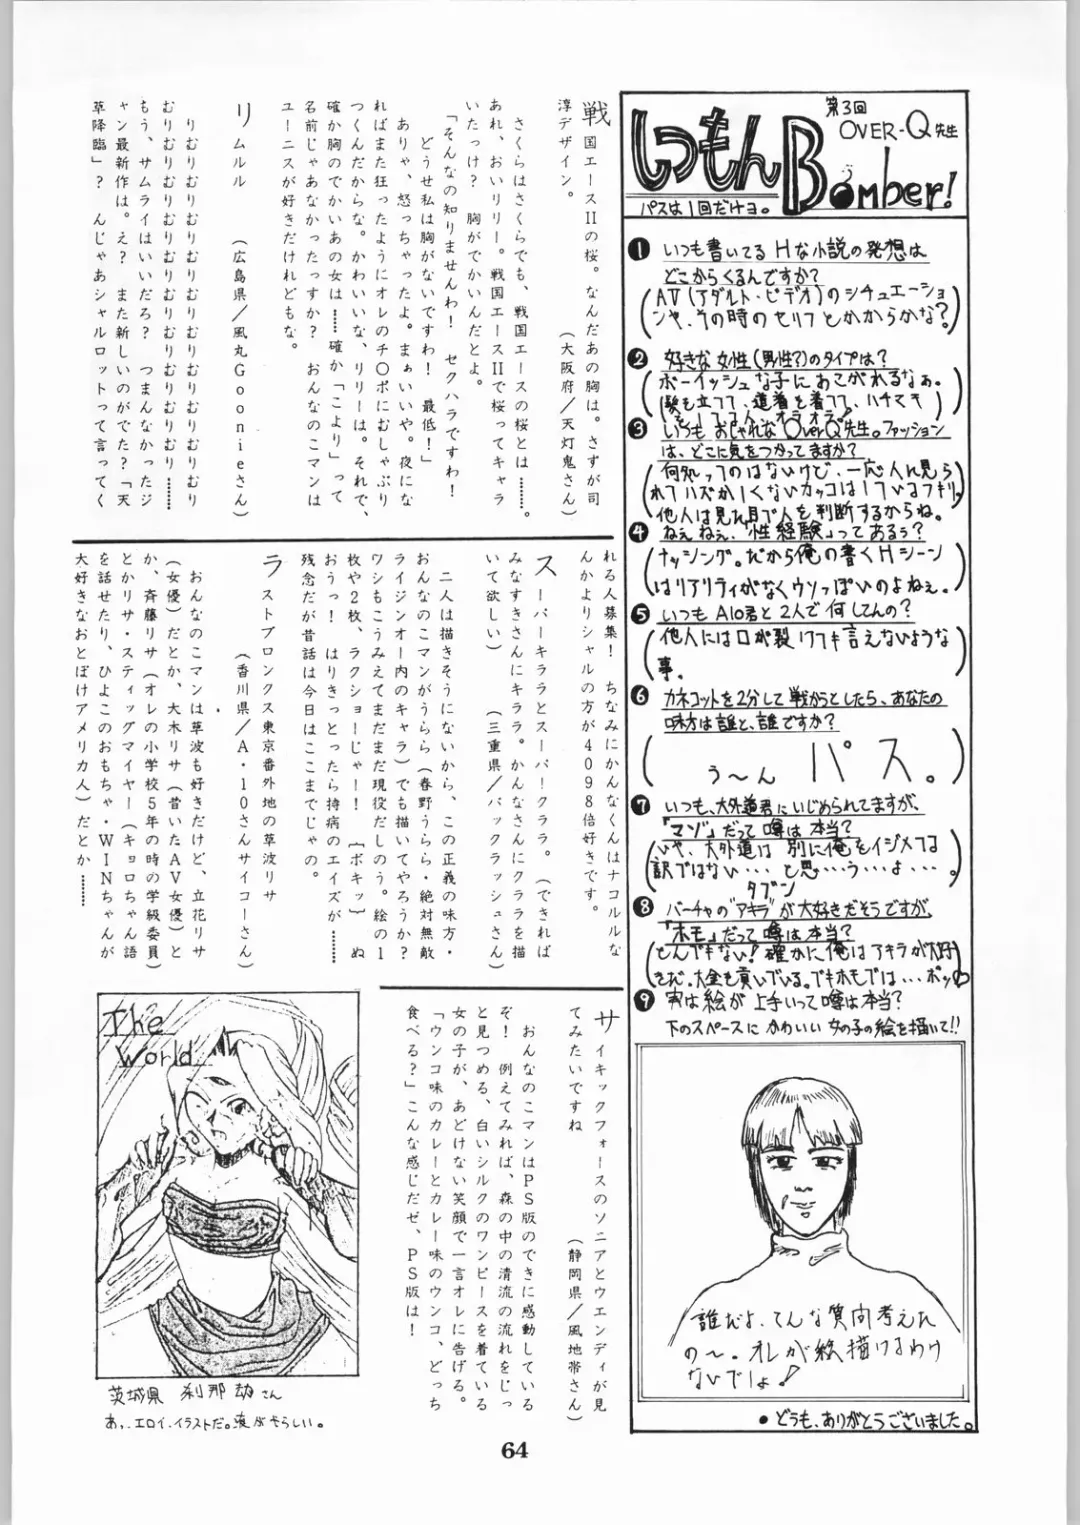 第3回
OVER-Q先生
しつもんBomber!
パスは1回だけヨ。
❶ いつも書いてるHな小説の発想は
どこからくるんですか?
(AV(アダルト・ビデオ)のシチュエーショ
ンや、その時のセリフとかからかな?)
❷ 好きな女性(男性?)のタイプは?
(ボーイッシュな子にあこがれるなぁ。
髪も立てて、道着を着てて、ハチマキ
もしててん、オラオラ!)
❸ いつもおしゃれなOverQ先生。ファッション
は、どこに気をつかってますか?
(何処ってのはないけど、一応人に見ら
れてハズかしくないカッコはしているつもり。
他人は見れ目で人を判断するからね。)
❹ ねぇねぇ、「性経験」ってあるぅ?
(ナッシング。だから俺の書くHシーン
はリアリティがなくウソっぽいのよねぇ。)
❺ いつもA10君と2人で何してんの?
(他人には口が裂けても言えないような
事。)
❻ カネコットを2分して戦かうとしたら、あなたの
味方は誰と、誰ですか?
(う〜ん パス。)
❼ いつも、大外道君にいじめられてますが、
「マゾ」だって噂は本当?
(いや、大外道は別に俺をイジメてる
訳ではない…と思…う…よ…。
タブン)
❽ バーチャの"アキラ"が大好きだそうですが、
「ホモ」だって噂は本当?
(とんでもない!確かに俺はアキラが大好
きだ。大金も貢いでいる。でもホモでは…ポッ♡)
❾ 実は絵が上手いって噂は本当?
下のスペースにかわいい女の子の絵を描いて!!
誰だよ、てんな質問考えた
の〜。オレが絵描けるわけ
ないでしょ!
●どうも、ありがとうございました。
戦国エースIIの桜。なんだあの胸は。さすが司
淳デザイン。
(大阪府/天灯鬼さん)
さくらはさくらでも、戦国エースの桜とは……。
あれ、おいリリー。戦国エースIIで桜ってキャラ
いたっけ? 胸がでかいんだとよ。
「そんなの知りませんわ! セクハラですわ!
どうせ私は胸がないですわ! 最低!」
ありゃ、怒っちゃったよ。まぁいいや。夜にな
ればまた狂ったようにオレのチ〇ポにむしゃぶり
つくんだからな。かわいいな、リリーは。それで、
確か胸のでかいあの女は……確か「こより」って
名前じゃあなかったっすか? おんなのこマンは
ユーニスが好きだけれどもな。
リムルル
(広島県/風丸Goonieさん)
りむりむりむりむりむりむりむりむりむりむり
むりむりむりむりむりむりむりむりむり………
もう、サムライはいいだろ? つまんなかったジ
ャン最新作は。え? また新しいのがでた?「天
草降臨」? んじゃあシャルロットって言ってく
れる人募集! ちなみにかんなくんはナコルルな
んかよりシャルの方が4098倍好きです。
スーパーキララとスーパークララ。(できれば
みなすきさんにキララ。かんなさんにクララを描
いて欲しい)
(三重県/バックラッシュさん)
二人は描きそうにないから、この正義の味方・
おんなのこマンがうらら(春野うらら・絶対無敵
ライジンオー内のキャラ)でも描いてやろうか?
ワシもこうみえてまだまだ現役だしのう。絵の1
枚や2枚、ラクショーじゃー! [ポキッ] ぬ
おうっ! はりきっとったら持病のエイズが……
残念だが昔話は今日はここまでじゃの。
ラストブロンクス東京番外地の草波リサ
(香川県/A・10さんサイコーさん)
おんなのこマンは草波も好きだけど、立花リサ
(女優)だとか、大木リサ(昔いたAV女優)と
か、斉藤リサ(オレの小学校5年の時の学級委員)
とかリサ・スティッグマイヤー(キョロちゃん語
を話せたり、ひよこのおもちゃ・WINちゃんが
大好きなおとぼけアメリカ人)だとか………
サイキックフォースのソニアとウエンディが見
てみたいですね
(静岡県/風地帯さん)
おんなのこマンはPS版のできに感動している
ぞ! 例えてみれば、森の中の清流の流れをじっ
と見つめる、白いシルクのワンピースを着ている
女の子が、あどけない笑顔で一言オレに告げる。
「ウンコ味のカレーとカレー味のウンコ、どっち
食べる?」こんな感じだぜ、PS版は!
The World
茨城県 刹那劫さん
あ,.エロイ、イラストだ。液がそらしい。
64